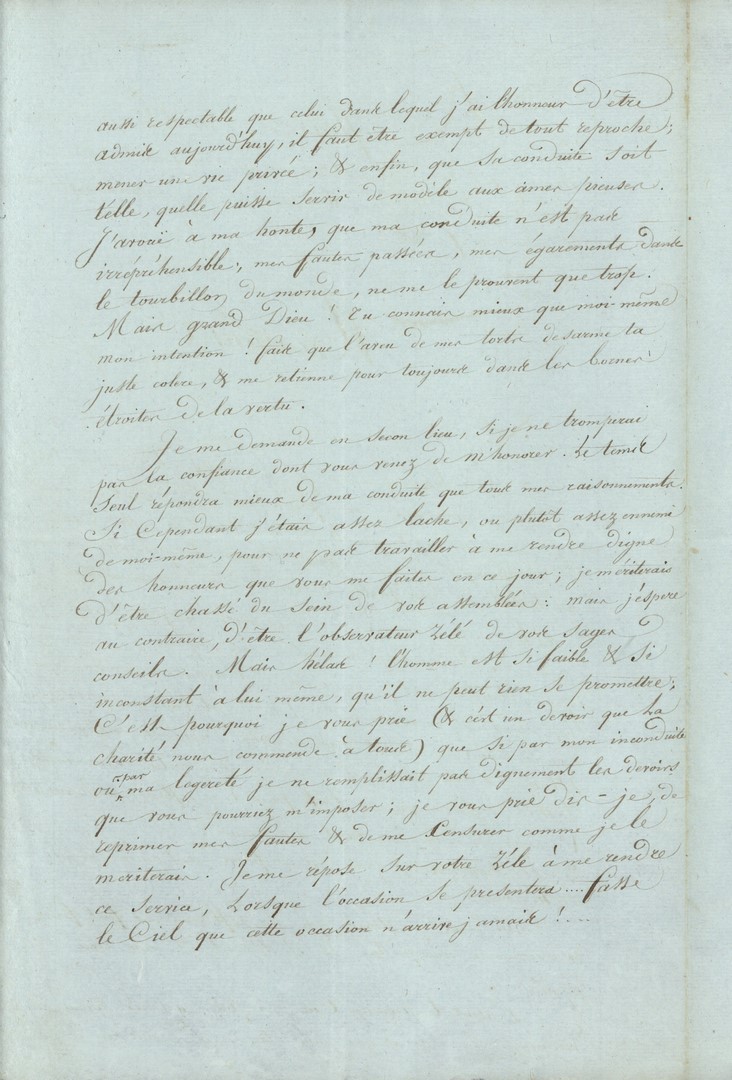 aussi respectable que celui dans lequel j'ai lhonneur d'être
admis aujourd'huy, il faut être exempt de tout reproche;
mener une vie privée; & enfin, que sa conduite soit
telle, quelle puisse servir de modèle aux âmes pieuses.
J'avoüe à ma honte, que ma conduite n'est pas
irrépréhensible; mes fautes passées, mes égarements dans
le tourbillon du monde, ne me le prouvent que trop.
Mais grand Dieu ! Tu connais mieux que moi-même
mon intention ! fais que l'aveu de mes torts desarme ta
juste colere, & me retienne pour toujours dans les bornes
étroites de la vertu.
Je me demande en secon lieu, si je ne tromperai
pas la confiance dont vous venez de m'honorer. Le tems
seul répondra mieux de ma conduite que tous mes raisonnements.
Si cependant j'étais assez lache, ou plutôt assez ennemi
de moi-même, pour ne pas travailler à me rendre digne
des honneurs que vous me faites en ce jour; je mériterais
d'être chassé du sein de vos assemblées: mais j'éspere
au contraire, d'être l'observateur zélé de vos sages
conseils. Mais hélas ! l'homme est si faible & si
inconstant à lui même, qu'il ne peut rien se promettre;
C'est pourquoi je vous prie (& c'ést un devoir que la
charité nous commende à tous) que si par mon inconduite
ou par ma legereté je ne remplissait pas dignement les devoirs
que vous pourriez m'imposer; je vous prie dis-je, de
reprimer mes fautes & de me censurer comme je le
meriterais. Je me répose sur votre zélé à me rendre
ce service, lorsque l'occasion se presentera .... fasse
le Ciel que cette occasion n'arrive jamais ! ...